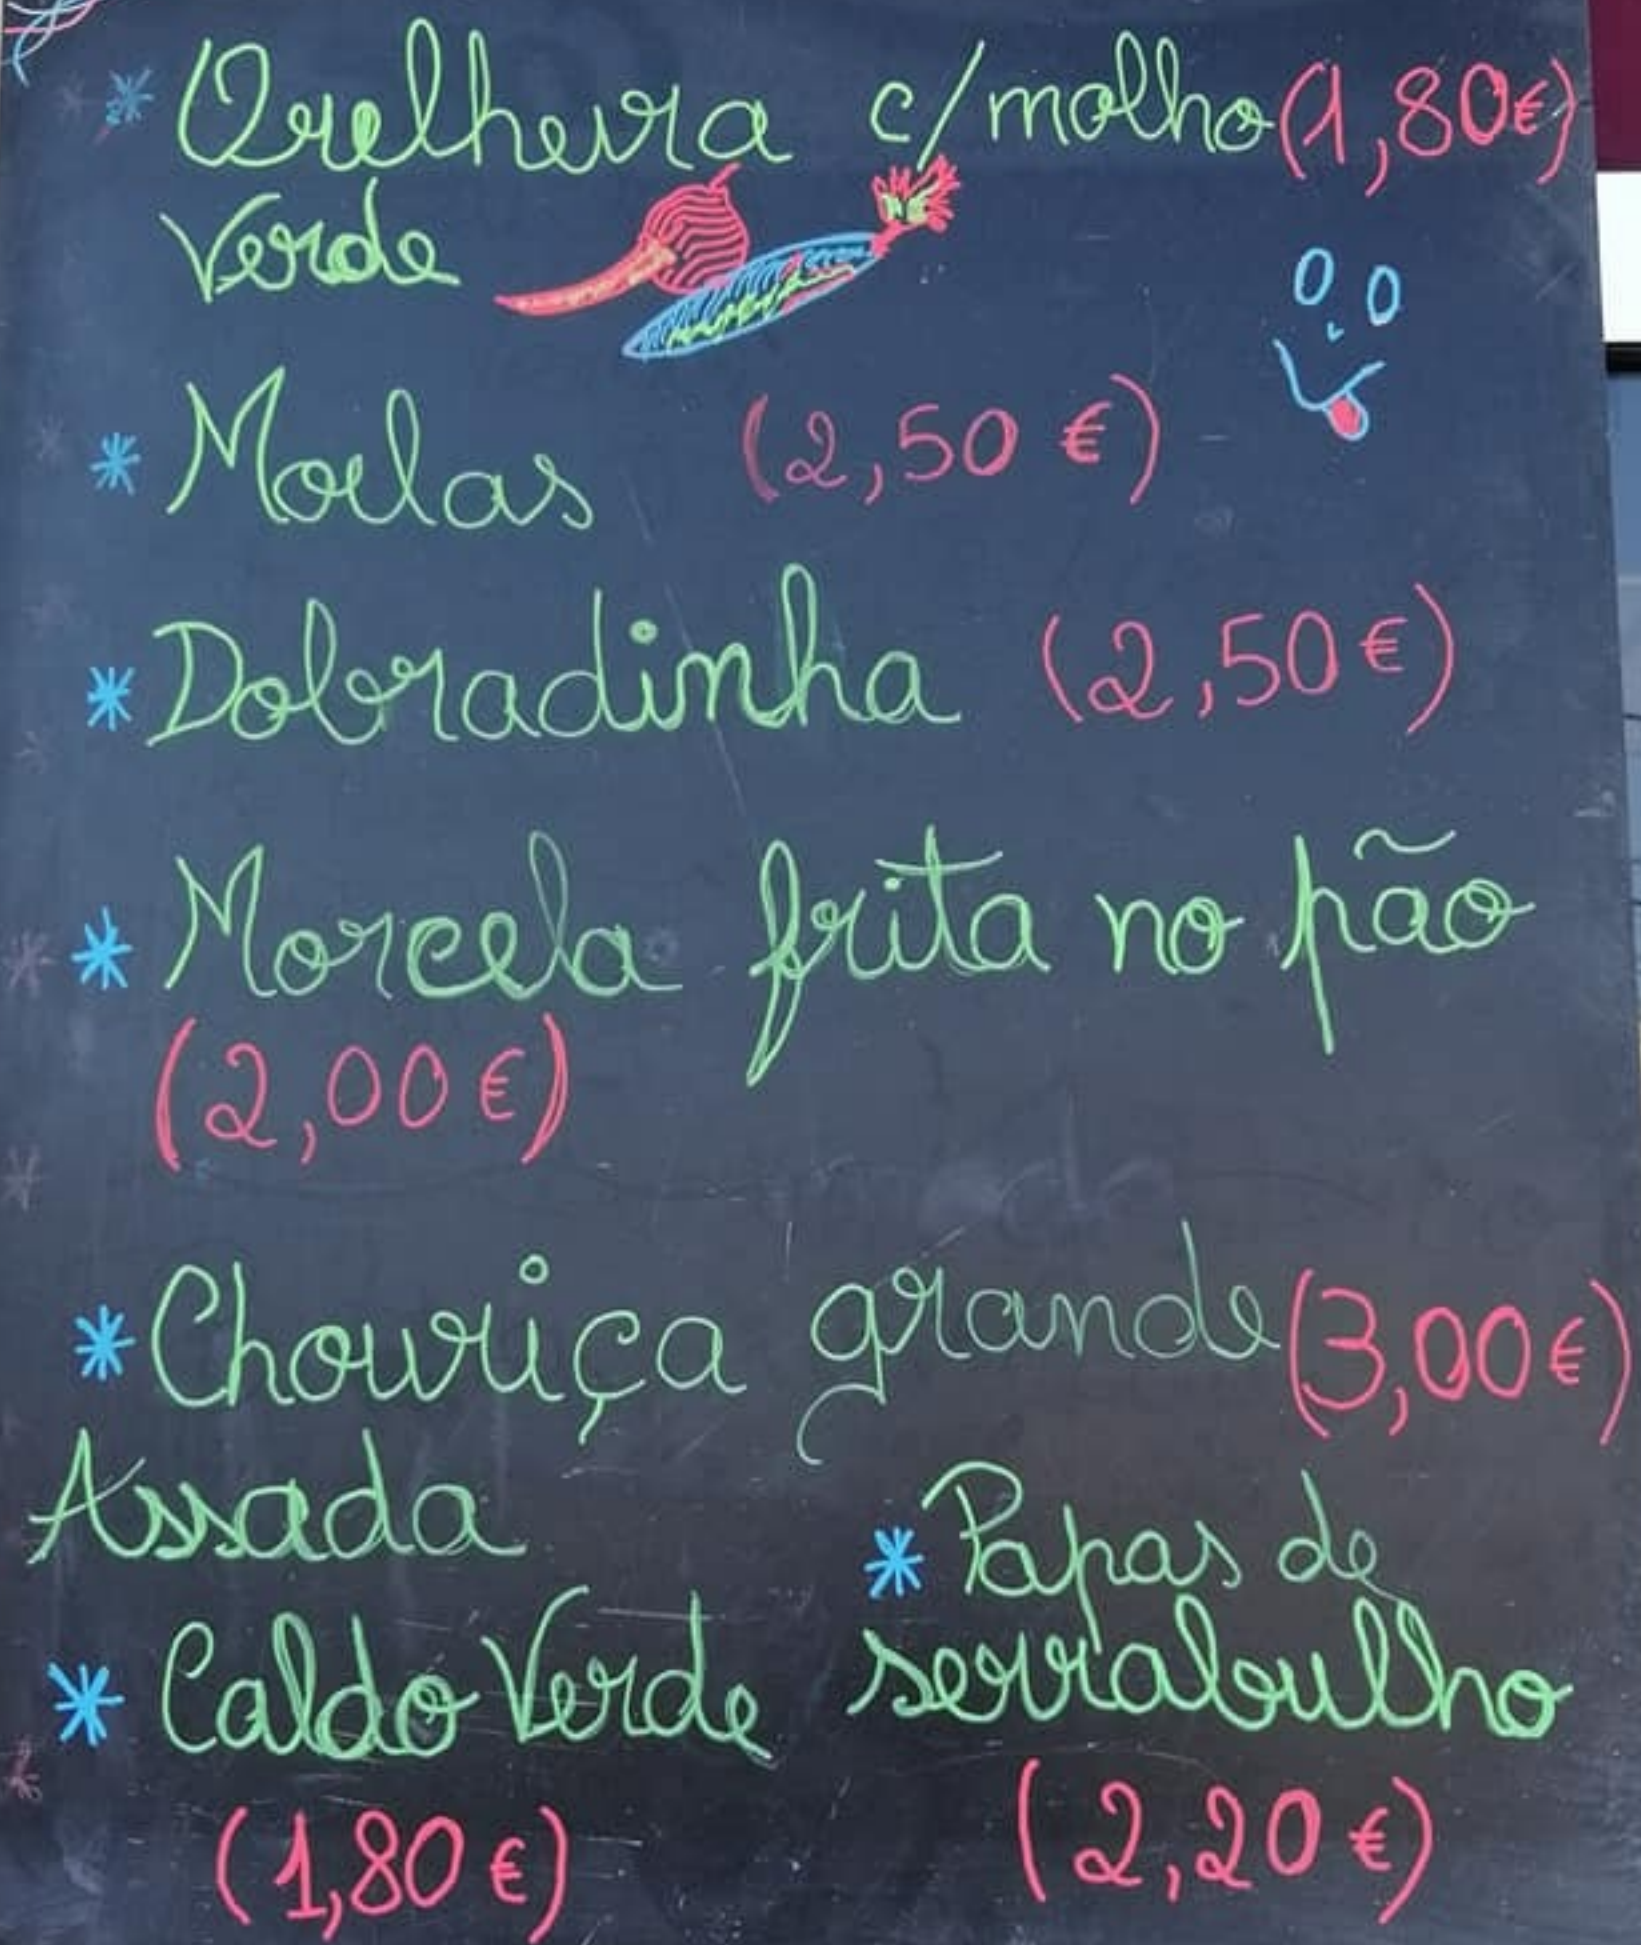 * Orelheira c/molho (1,80€)
Verde
* Moelas (2,50 €)
* Dobradinha (2,50€)
* Morcela frita no pão
(2,00€)
* Chouriça grande (3,00€)
Assada
* Caldo Verde
(1,80€)
* Papas de
serrabulho
(2,20€)